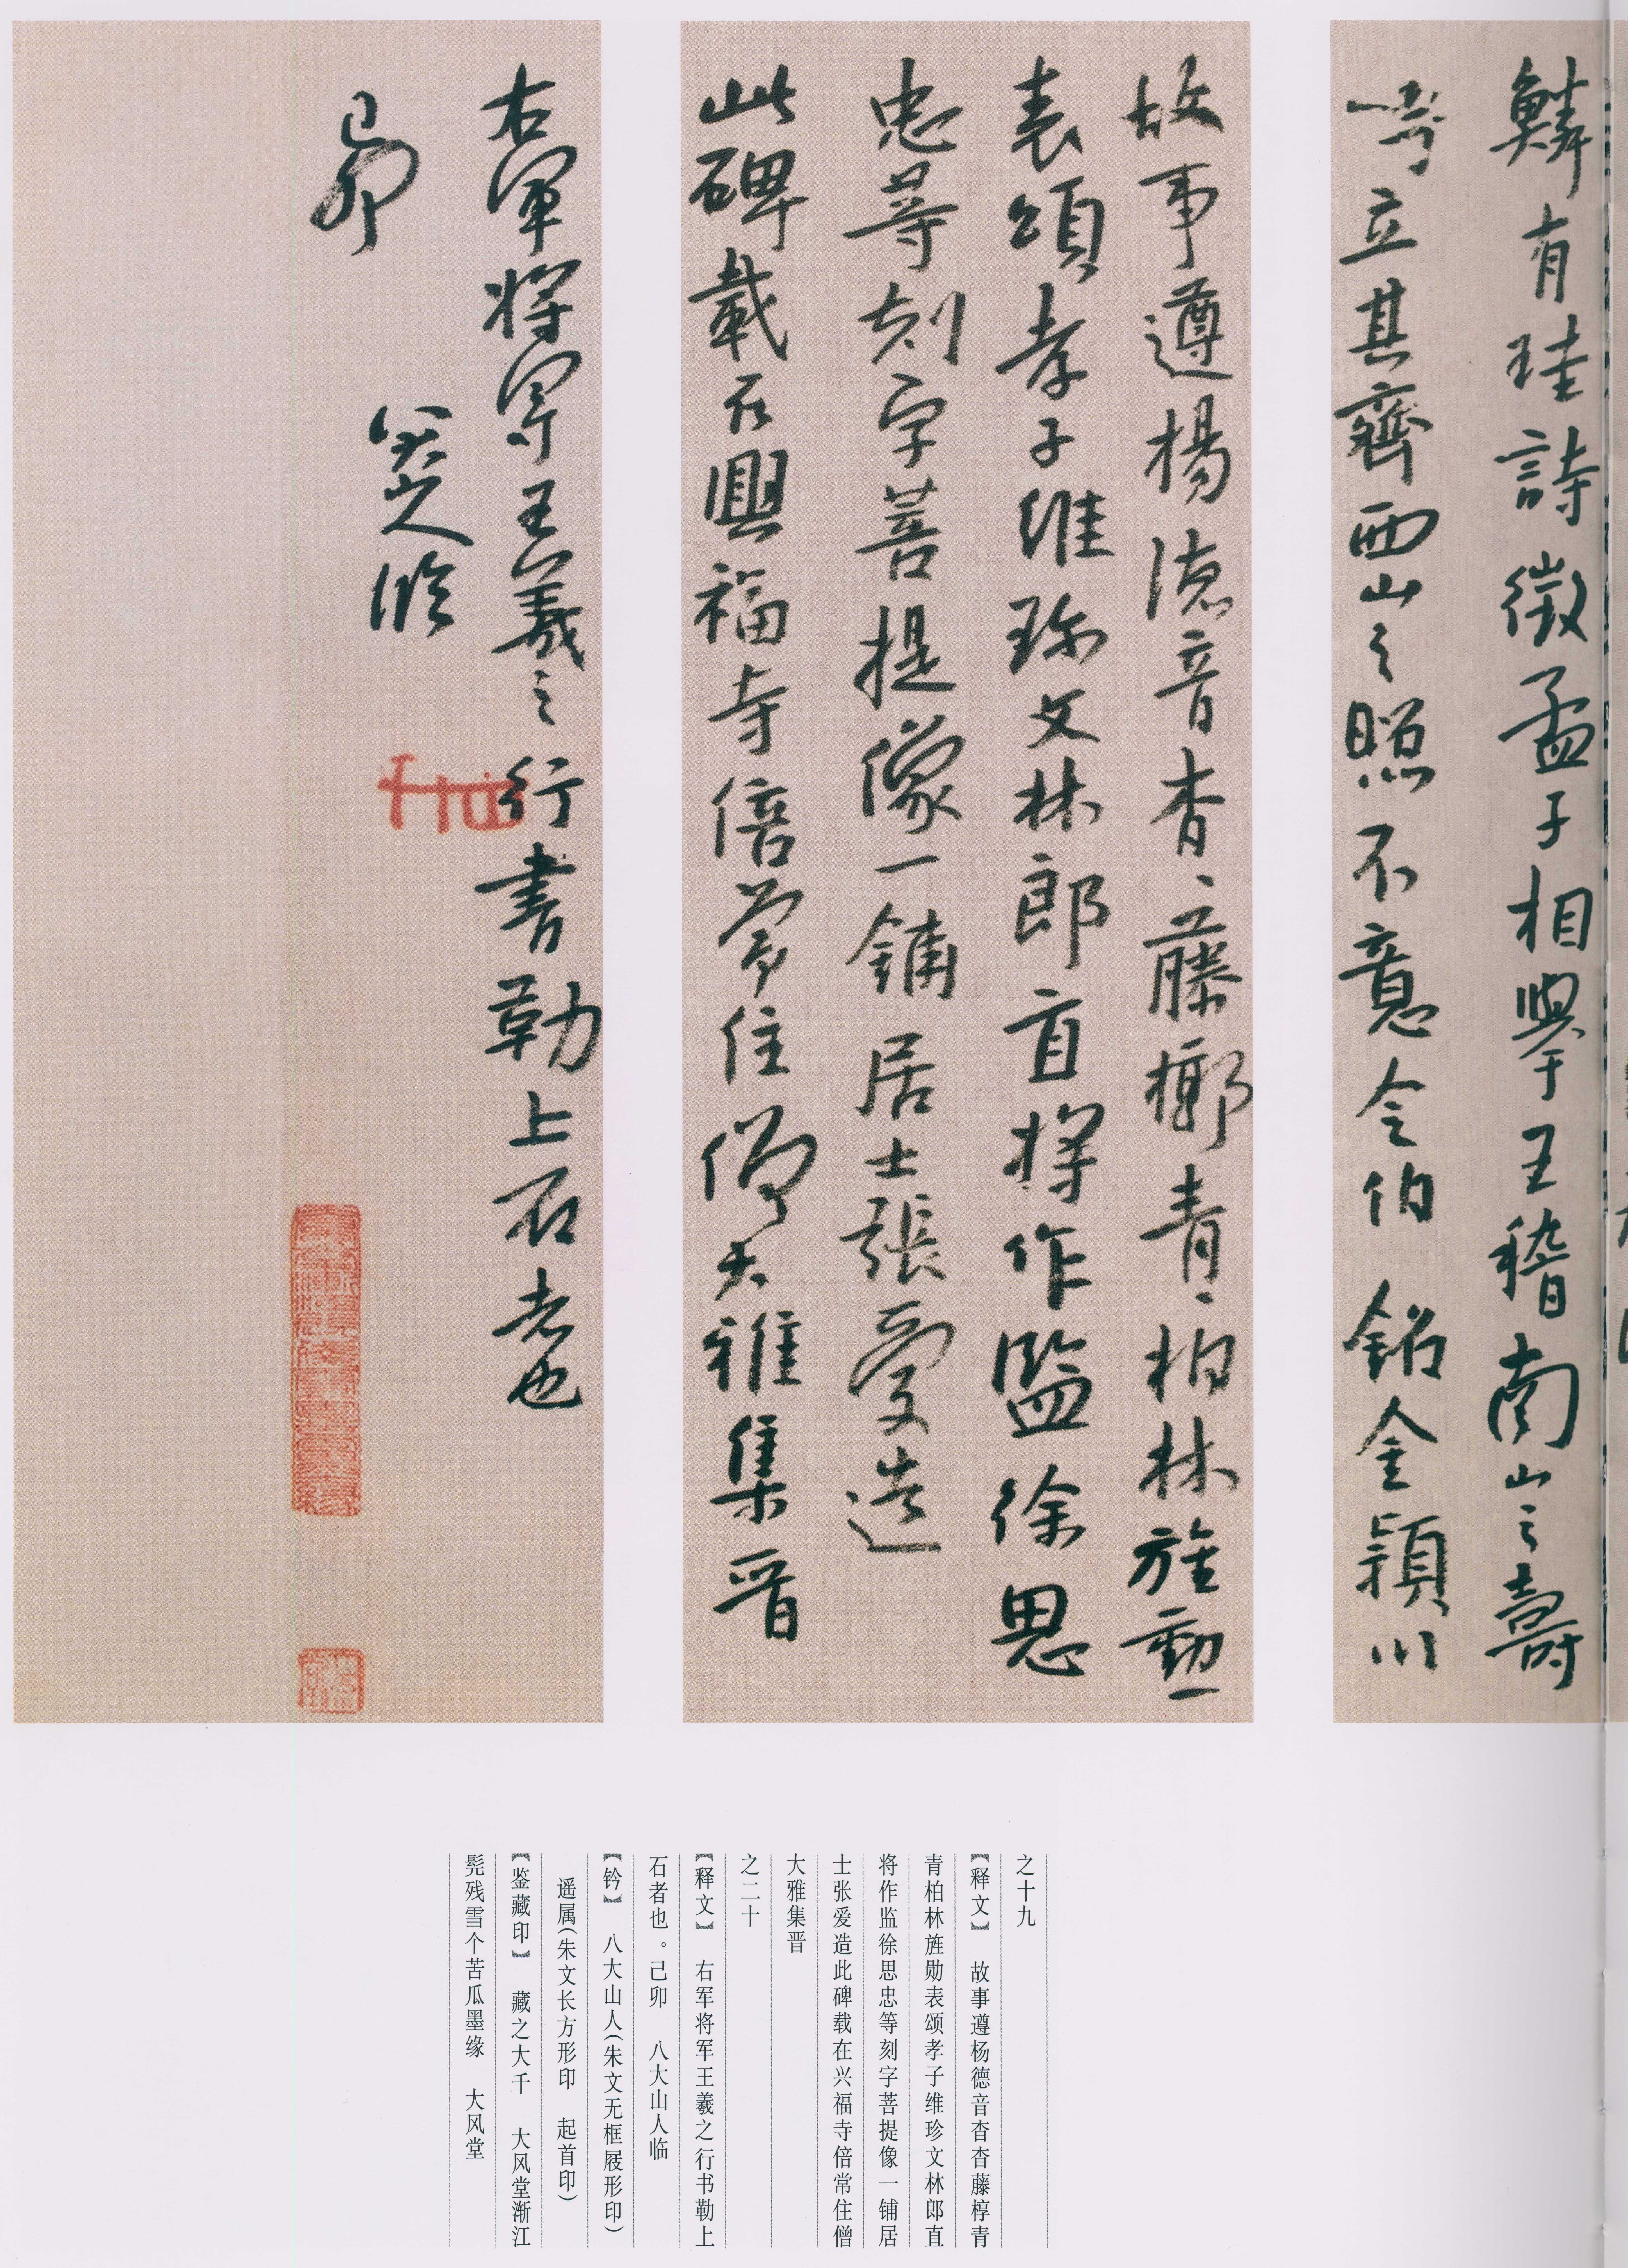 鱗有珪詩徵孟子相學王稽南山之壽
立其齊西山之照不意令伯銘金穎川
故事遵楊德音杳〻藤槨青〻柏林旌勳一
表頌孝子維珎文林郎直將作監徐思
忠等刻字菩提像一鋪居士張爱造
此碑載在興福寺倍常住僧大雅集晋
右軍将軍王羲之行書勒上石者也
己卯
八大山人临
之十九
【释文】 故事遵杨德音杳杳藤椁青
青柏林旌勋表颂孝子维珍文林郎直
将作监徐思忠等刻字菩提像一铺居
士张爱造此碑载在兴福寺倍常住僧
大雅集晋
之二十
【释文】 右军将军王羲之行书勒上
石者也。己卯 八大山人临
【钤】 八大山人(朱文无框屐形印)
遥属(朱文长方形印 起首印)
【鉴藏印】 藏之大千 大风堂渐江
髡残雪个苦瓜墨缘 大风堂